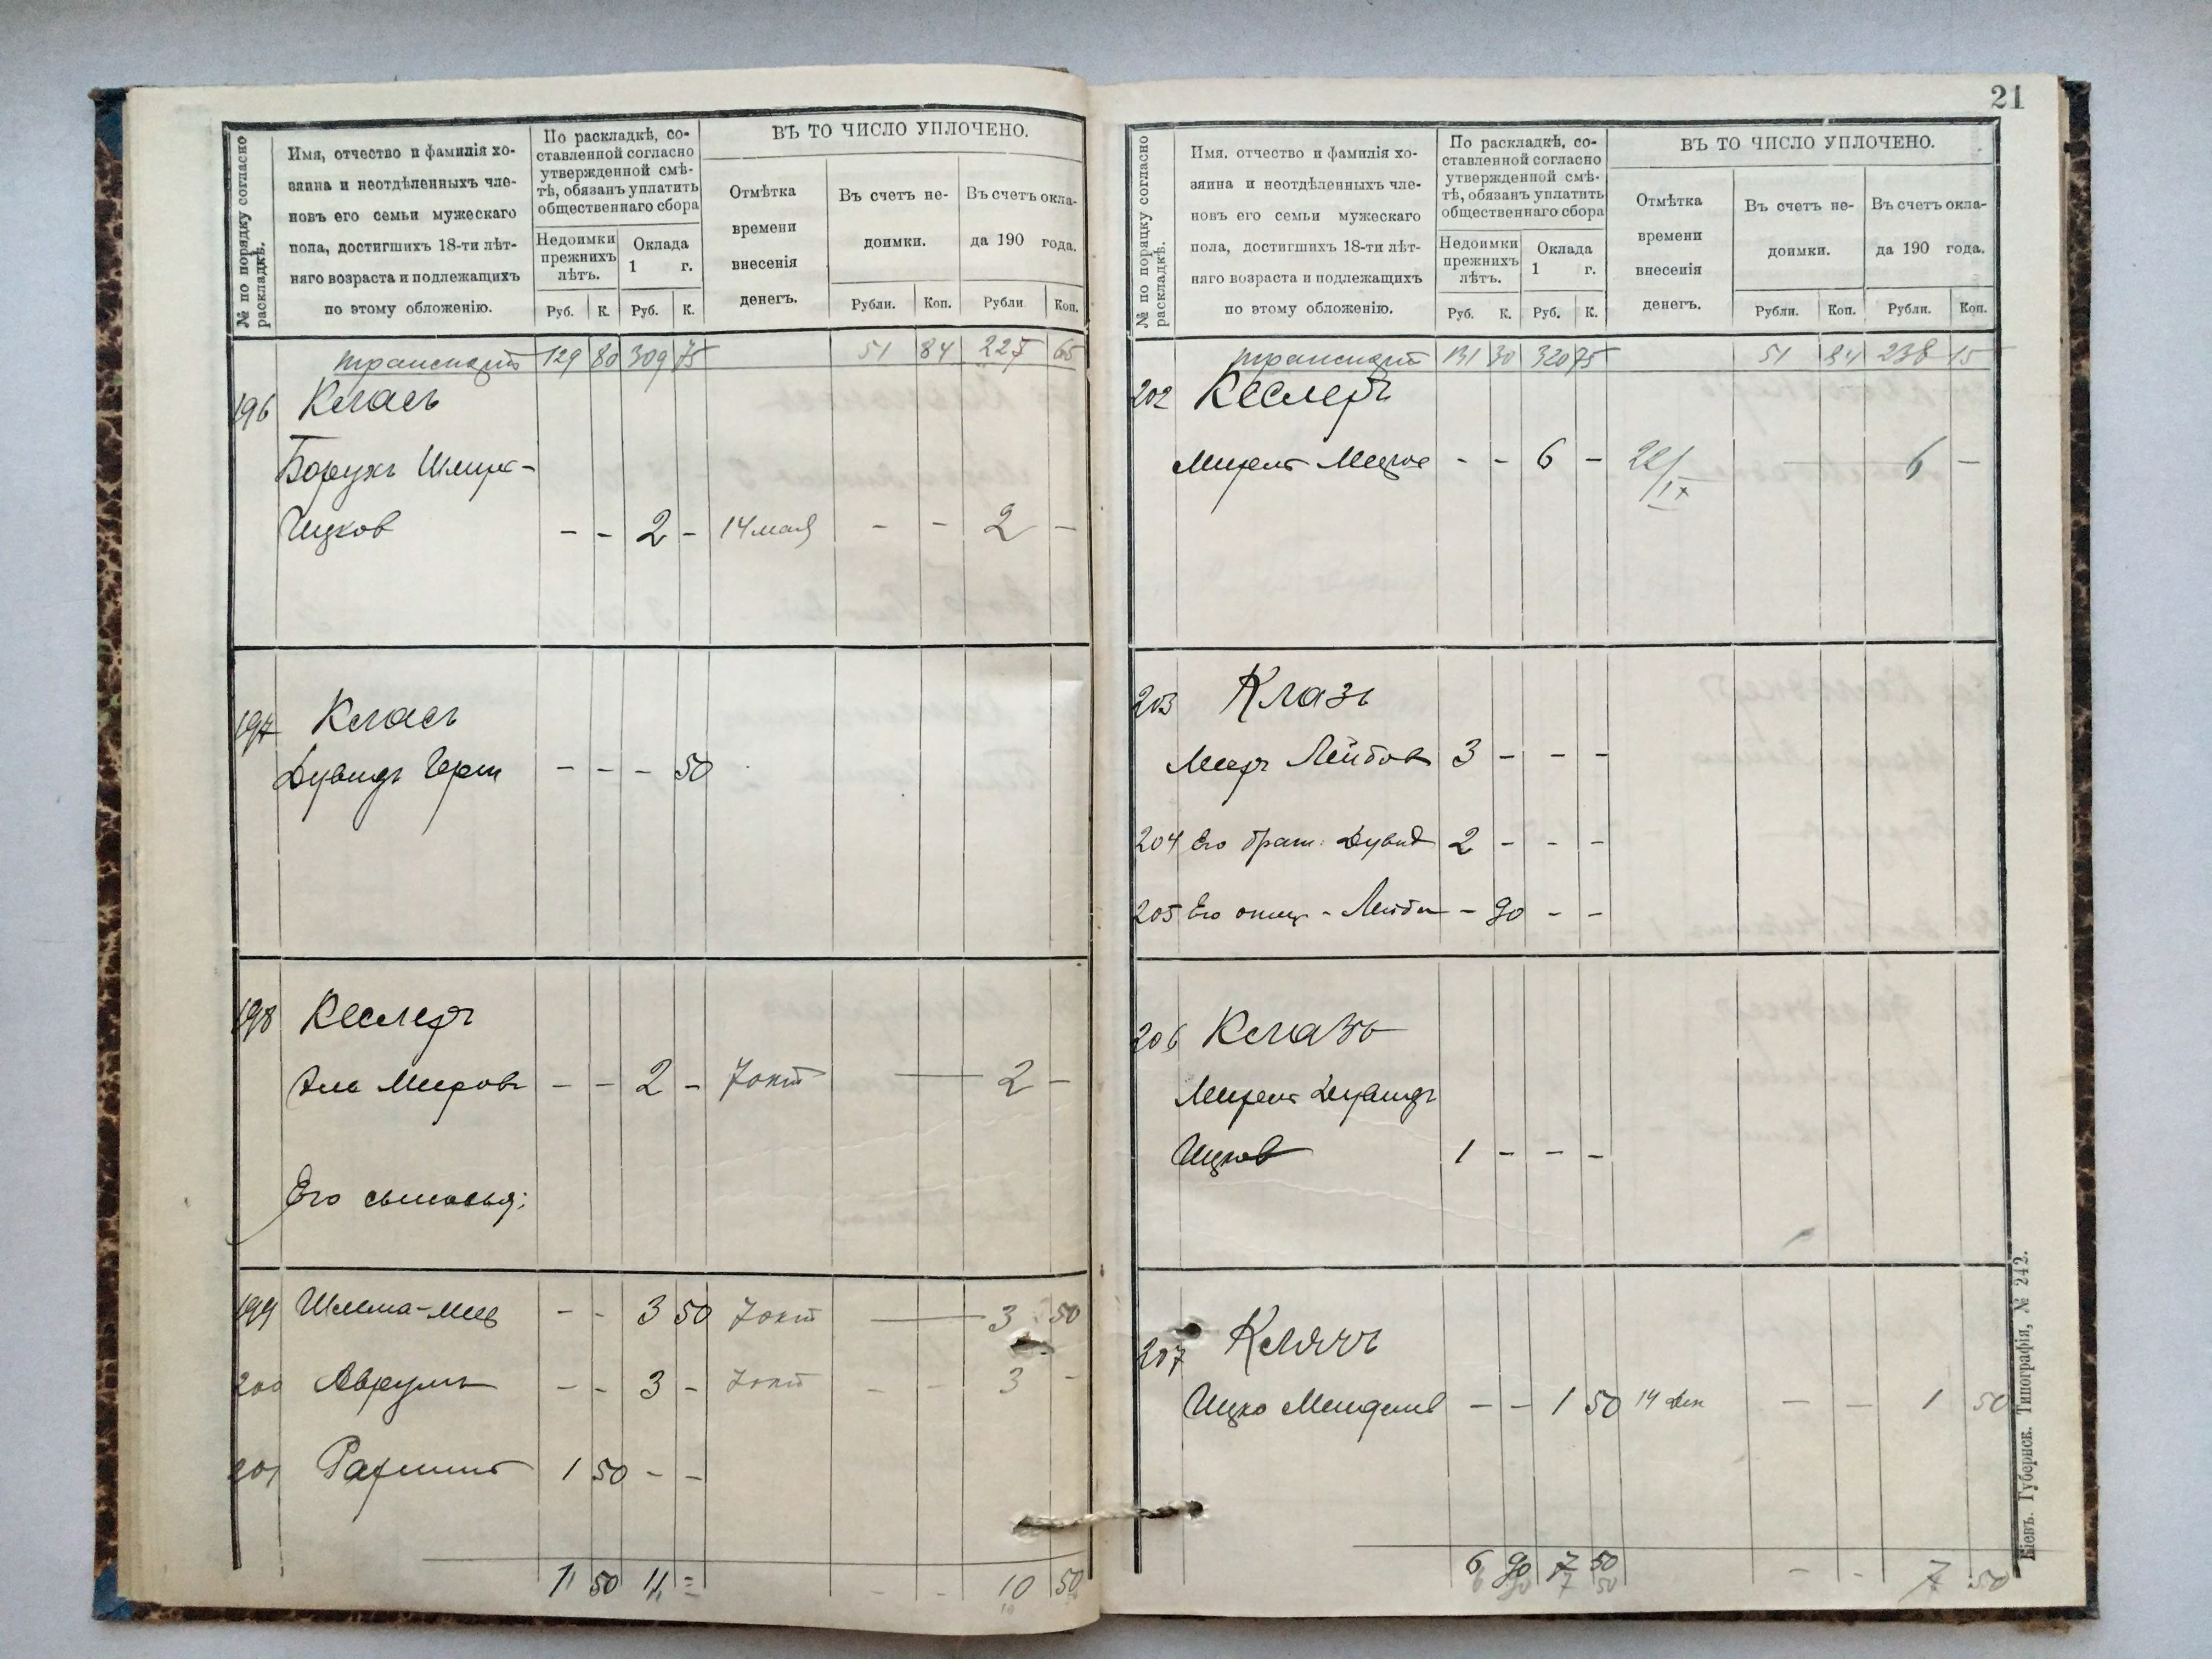 № по порядку согласно
раскладкѣ.
Имя, отчество и фамилія хо-
зяина и неотдѣленныхъ чле-
новъ его семьи мужескаго
пола, достигшихъ 18-ти лѣт-
няго возраста и подлежащихъ
по этому обложенію.
По раскладкѣ, со-
ставленной согласно
утвержденной смѣ-
тѣ, обязанъ уплатить
общественнаго сбора
Недоимки
прежнихъ
лѣтъ.
Оклада
1 г.
Руб. К. Руб. К.
ВЪ ТО ЧИСЛО УПЛОЧЕНО.
Отмѣтка
времени
внесенія
денегъ.
Въ счетъ не-
доимки.
Въ счетъ окла-
да 190 года.
Рубли. Коп. Рубли Коп.
транспортъ 129 80 309 75 51 84 227 65
196 Класъ
Борухъ
Ицков - - 2 - 14 мая - - 2 -
197 Класъ
Дувидъ Герш - - - 50
198 Кеслеръ
Меировъ - - 2 - 7 окт — 2 -
Его сыновья:
199 Шлема-Меер - - 3 50 7 окт — 3 50
200 Аврумъ - - 3 - 7 окт - - 3 -
201 1 50 - -
1 50 11 = - - 10 50
21
№ по порядку согласно
раскладкѣ.
Имя, отчество и фамилія хо-
зяина и неотдѣленныхъ чле-
новъ его семьи мужескаго
пола, достигшихъ 18-ти лѣт-
няго возраста и подлежащихъ
по этому обложенію.
По раскладкѣ, со-
ставленной согласно
утвержденной смѣ-
тѣ, обязанъ уплатить
общественнаго сбора
Недоимки
прежнихъ
лѣтъ.
Оклада
1 г.
Руб. К. Руб. К.
ВЪ ТО ЧИСЛО УПЛОЧЕНО.
Отмѣтка
времени
внесенія
денегъ.
Въ счетъ не-
доимки.
Въ счетъ окла-
да 190 года.
Рубли. Коп. Рубли. Коп.
транспортъ 131 30 320 75 51 84 238 15
202 Кеслеръ
- - 6 - 22/IX — 6 —
203 Клазъ
Мееръ Лейбов 3 - - -
204 Его брат: Дувид 2 - - -
205 Его отец - Лейба - 90 - -
206 Клазъ
Дувидъ
Ицков 1 - - -
207 Клячъ
Ицко Мендел - - 1 50 14 Дек - - 1 50
6 90 7 50 - - 7 50
6 90 7 50
Кіевъ. Губернск. Типографія, № 242.